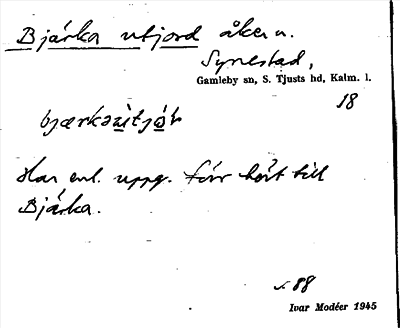 Bjárka utjord åker u.
Synestad,
Gamleby sn, S. Tjusts hd, Kalm. l.
18
Har enl. uppg. förr hört till
Bjárka.
s. 88
Ivar Modéer 1945